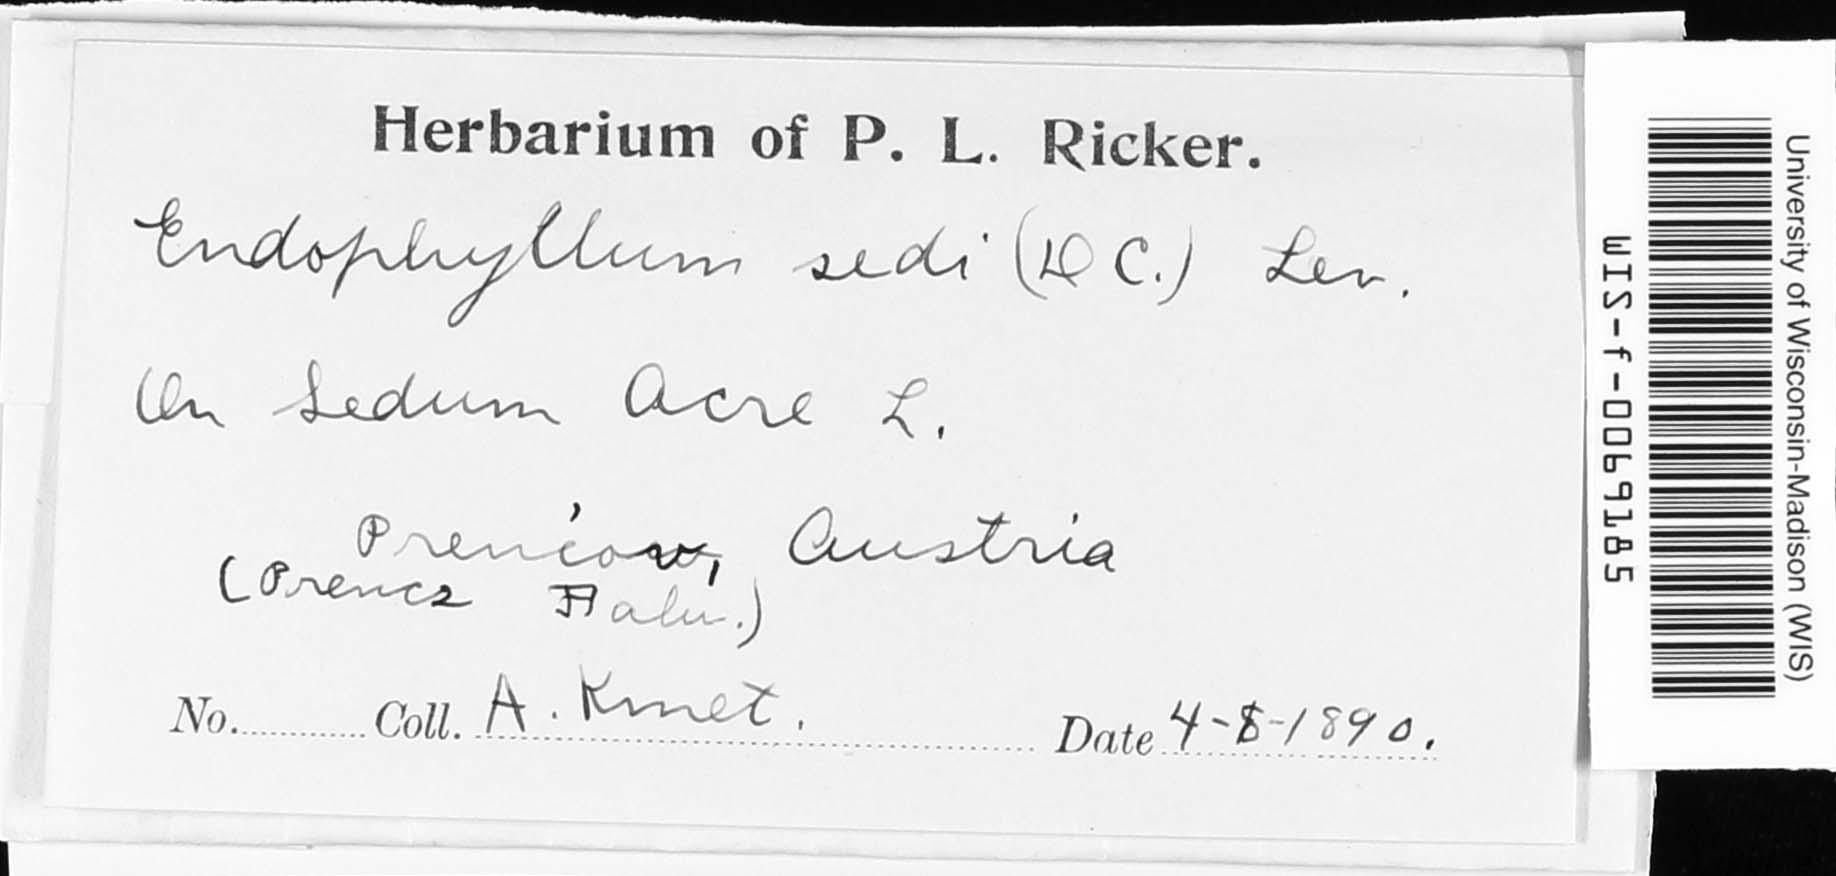 Herbarium of P. L. Ricker.
Endophyllum sedi (DC.) Lev.
On Sedum Acre L.
Prenćow, Austria
(Prencz Falu.)
No. Coll. A. Kmet. Date 4-8-1890.
WIS-f-0069185
University of Wisconsin-Madison (WIS)